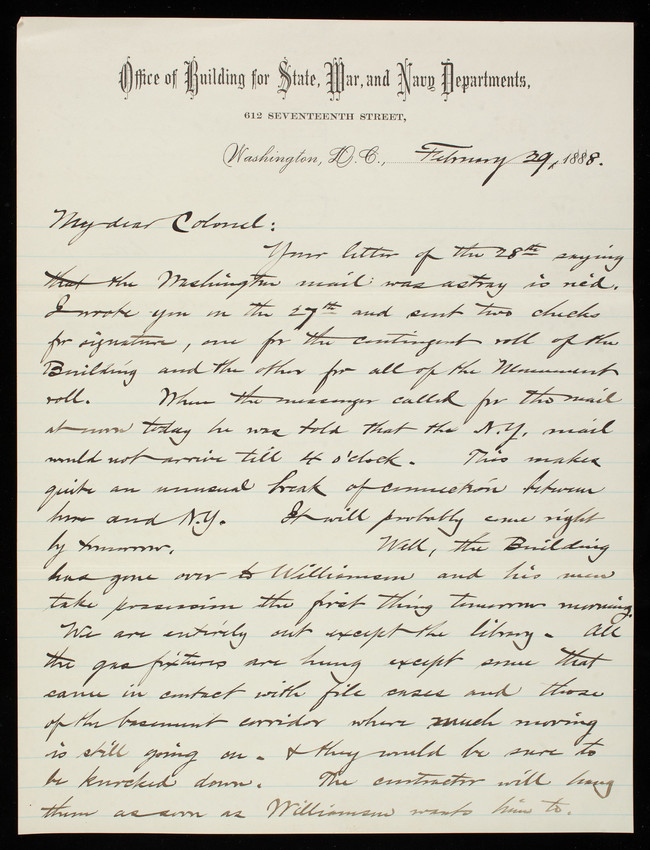 Office of Building for State, War, and Navy Departments,
612 SEVENTEENTH STREET,
Washington, D.C., February 29, 1888.
My dear Colonel:
Your letter of the 28th saying
that the Washington mail was astray is rec'd.
I wrote you on the 27th and sent two checks
for signature, one for the contingent roll of the
Building and the other for all of the Monument
roll. When the messenger called for the mail
at noon today he was told that the N.Y. mail
would not arrive till 4 o'clock. This makes
quite an unusual break of connection between
here and N.Y. It will probably come right
by tomorrow. Well, the Building
has gone over to Williamson and his men
take possession the first thing tomorrow morning.
We are entirely out except the library - All
the gas fixtures are hung except some that
came in contact with file cases and those
of the basement corridor where much moving
is still going on - & they would be sure to
be knocked down. The contractor will hang
them as soon as Williamson wants him to.